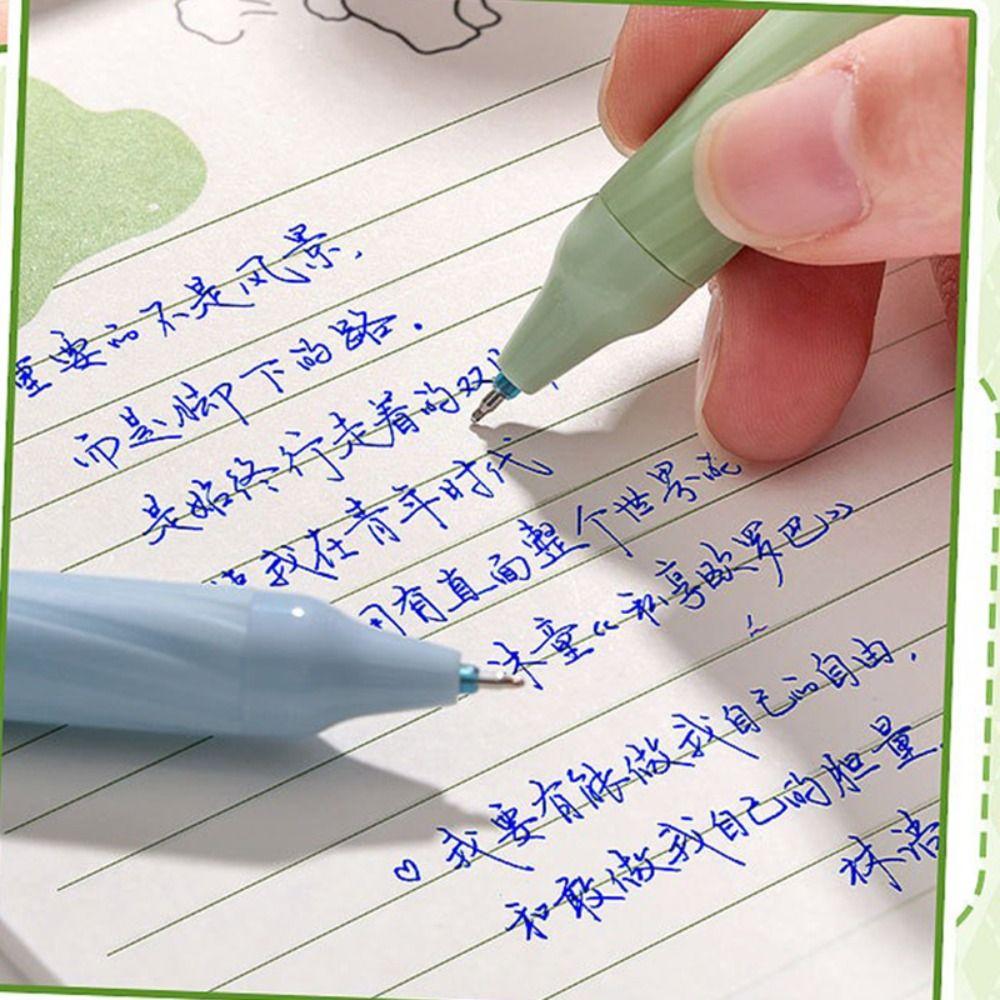 重要的不是风景，
而是脚下的路．
是始终行走着的双
我在青年时代
用有直面整个世界的
沐童《私享欧罗巴》
♡ 我要有能做我自己的自由．
和敢做我自己的胆量．
林浩